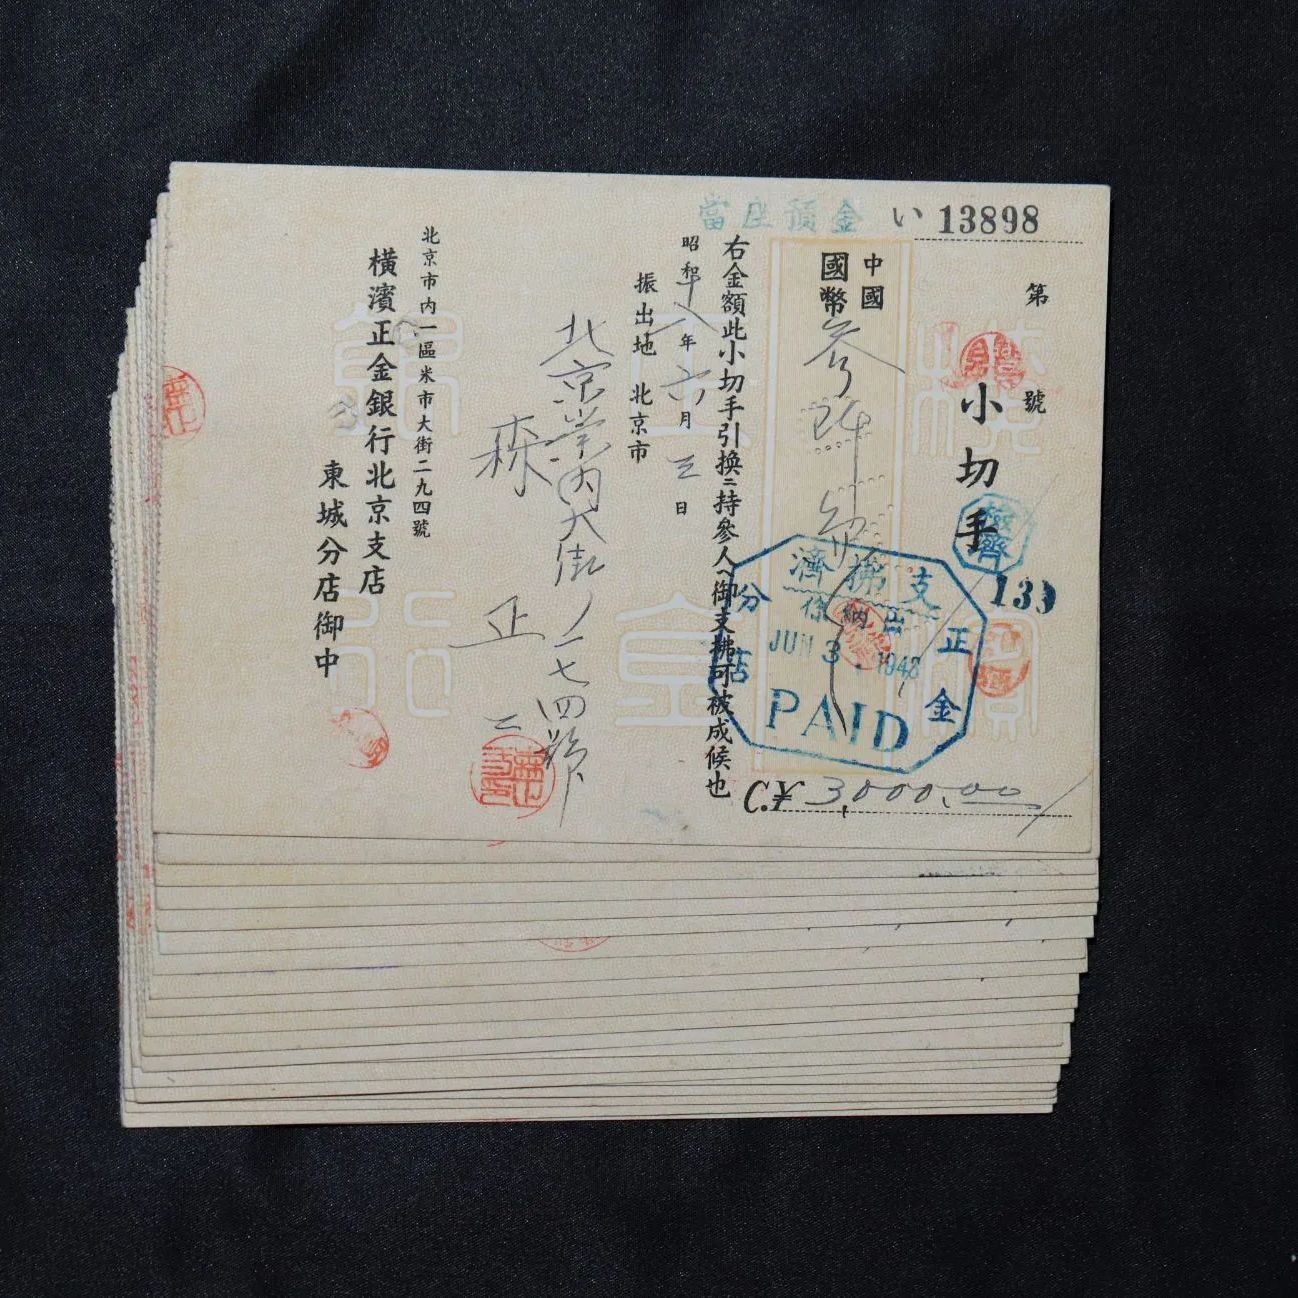 當座預金
い 13898
第 號
小切手
133
中國
國幣 參阡
右金額此小切手引換ニ持參人ヘ御支拂可被成候也
昭和十八年六月三日
振出地 北京市
北京崇内大街一七四號
森 正二
北京市内一區米市大街二九四號
橫濱正金銀行北京支店
東城分店御中
支拂濟
正金
分店
出納係
JUN 3. 1943
PAID
C.¥ 3,000.00
橫濱正金銀行